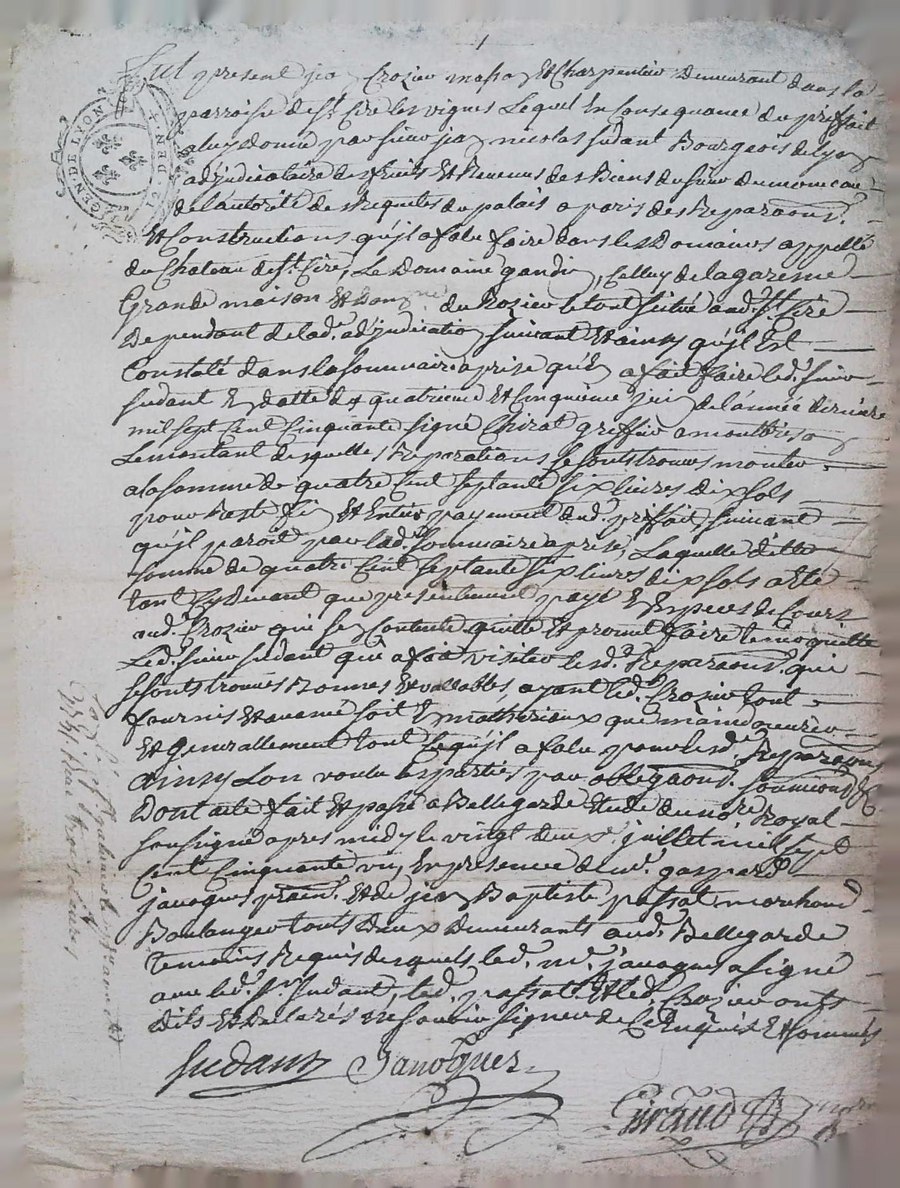 GEN. DE LYON
Fut present jean Crozier masson Et Charpentier Demeurant dans la
parroisse de St. Cire les vignes Lequel En Consequance du prisfait
a luy donné par sieur jean nicolas sudant Bourgeois de Lyon
adjudicataire des fruits Et Revenus des Biens du sieur
de l'autorité des Requetes du palais a paris des Reparaons.
Et Constructions qu'jl a falu faire dans les Domaines appellé
du Chateau de St. Cire, Le Domaine gandin, Celluy de la garenne
Grande maison Et du Rozier le tout scitué aud. St. Cire
Dependant de lad. adjudication suivant Et ainsy qu'jl Est
Constaté dans la sommaire aprise qu'en a fait faire led. sieur
sudant En datte des quatrieme Et Cinquieme juin de l'année derniere
mil sept Cent Cinquante signé Chirat greffier a montbrison
Le montant desquelles Reparations se sont trouves monter
a la somme de quatre Cent septante six livres dix sols
pour Reste fin Et Entier payement dud. prisfait suivant
qu'jl paroit par lad. sommaire aprise, Laquelle ditte
somme de quatre Cent septante six livres dix sols a été
tant Cydevant que presentement payé En Especes de Cours
aud. Crozier qui s'en Contente quitte Et promet faire tenir quitte
Led. sieur sudant qui a fait visiter lesd. Reparaons. qui
se sont trouvées Bonnes Et vallables, ayant led. Crozier tout
fourni Et avancé soit En matheriaux que maindoeuvre
Et Generallement tout Ce qu'jl a falu pour lesd. Reparaons
Ainsy L'on voulu les parties par obligaons. soumissions &c
Dont acte fait Et passé a Bellegarde Etude du nore. Royal
soussigné apres midy le vingt deux juillet mil sept
Cent Cinquante un En presence de mr. gaspard
janoques Et de jean Baptiste passat marchand
Boulanger touts deux Demeurants aud. Bellegarde
Temoins Requis desquels led. mr. janoques a signé
avec led. sr. sudant, led. passat Et led. Crozier onts
dits Et Declarés ne savoir signer de Ce Enquis Et sommés
Sudant Janoques
Giraud